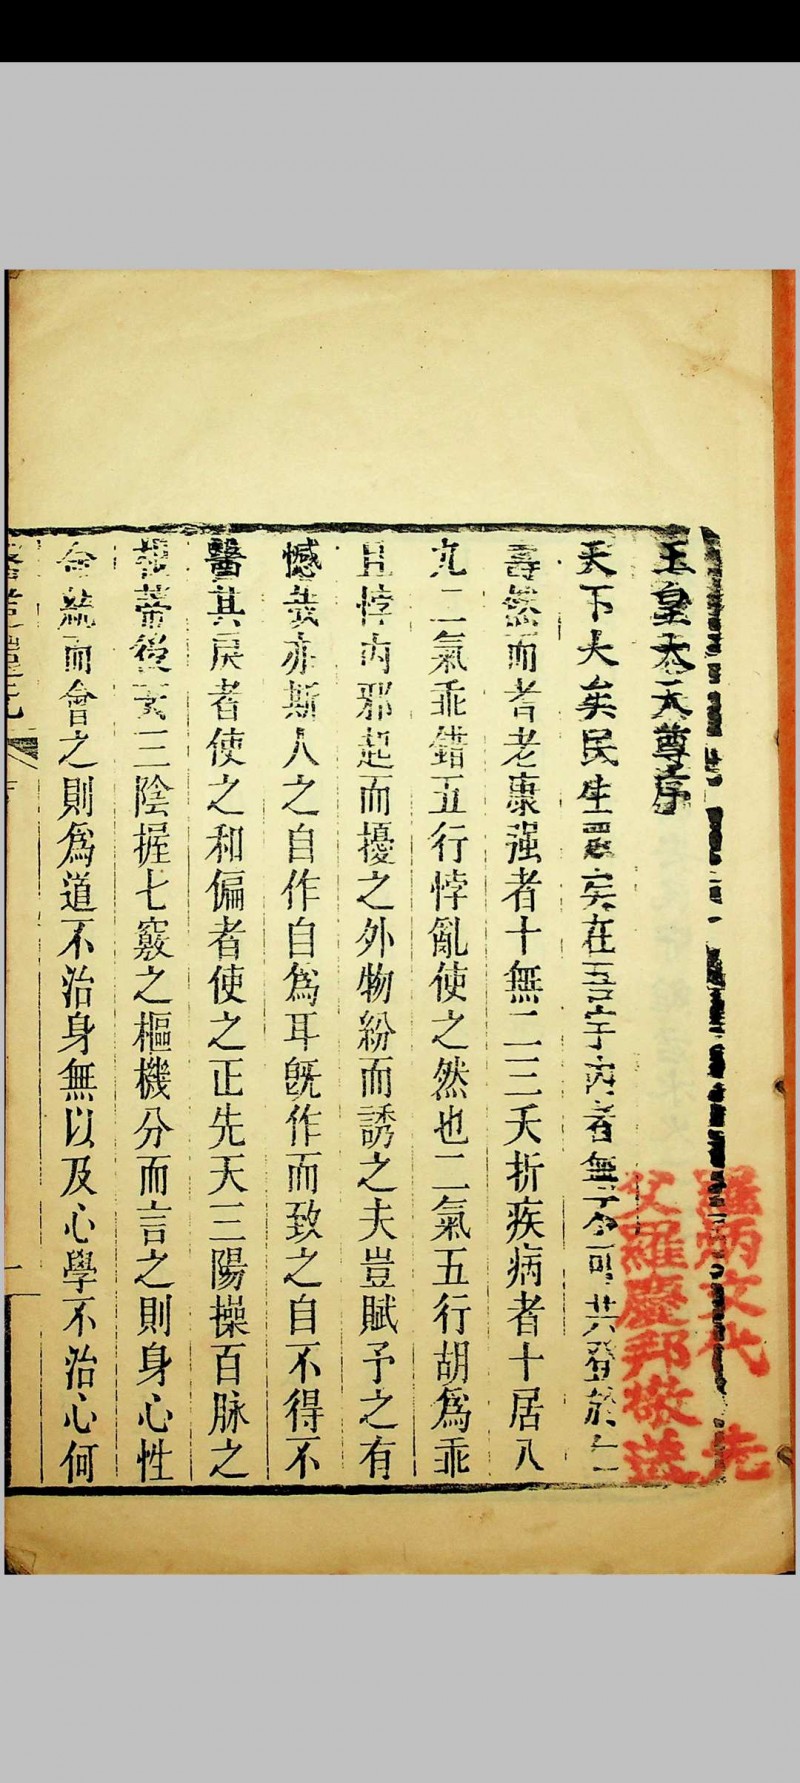 玉皇大天尊序
天下大矣民生眾矣在吾宇內者無不可共登於仁
壽然而耆老康强者十無二三夭折疾病者十居八
九二氣乖錯五行悖亂使之然也二氣五行胡爲乖
且悖內邪起而擾之外物紛而誘之夫豈賦予之有
憾哉亦斯人之自作自爲耳旣作而致之自不得不
醫其戾者使之和偏者使之正先天三陽操百脉之
蒂後天三陰握七竅之樞機分而言之則身心性
命統而會之則爲道不治身無以及心學不治心何
羅炳文代先
父羅慶邦敬送